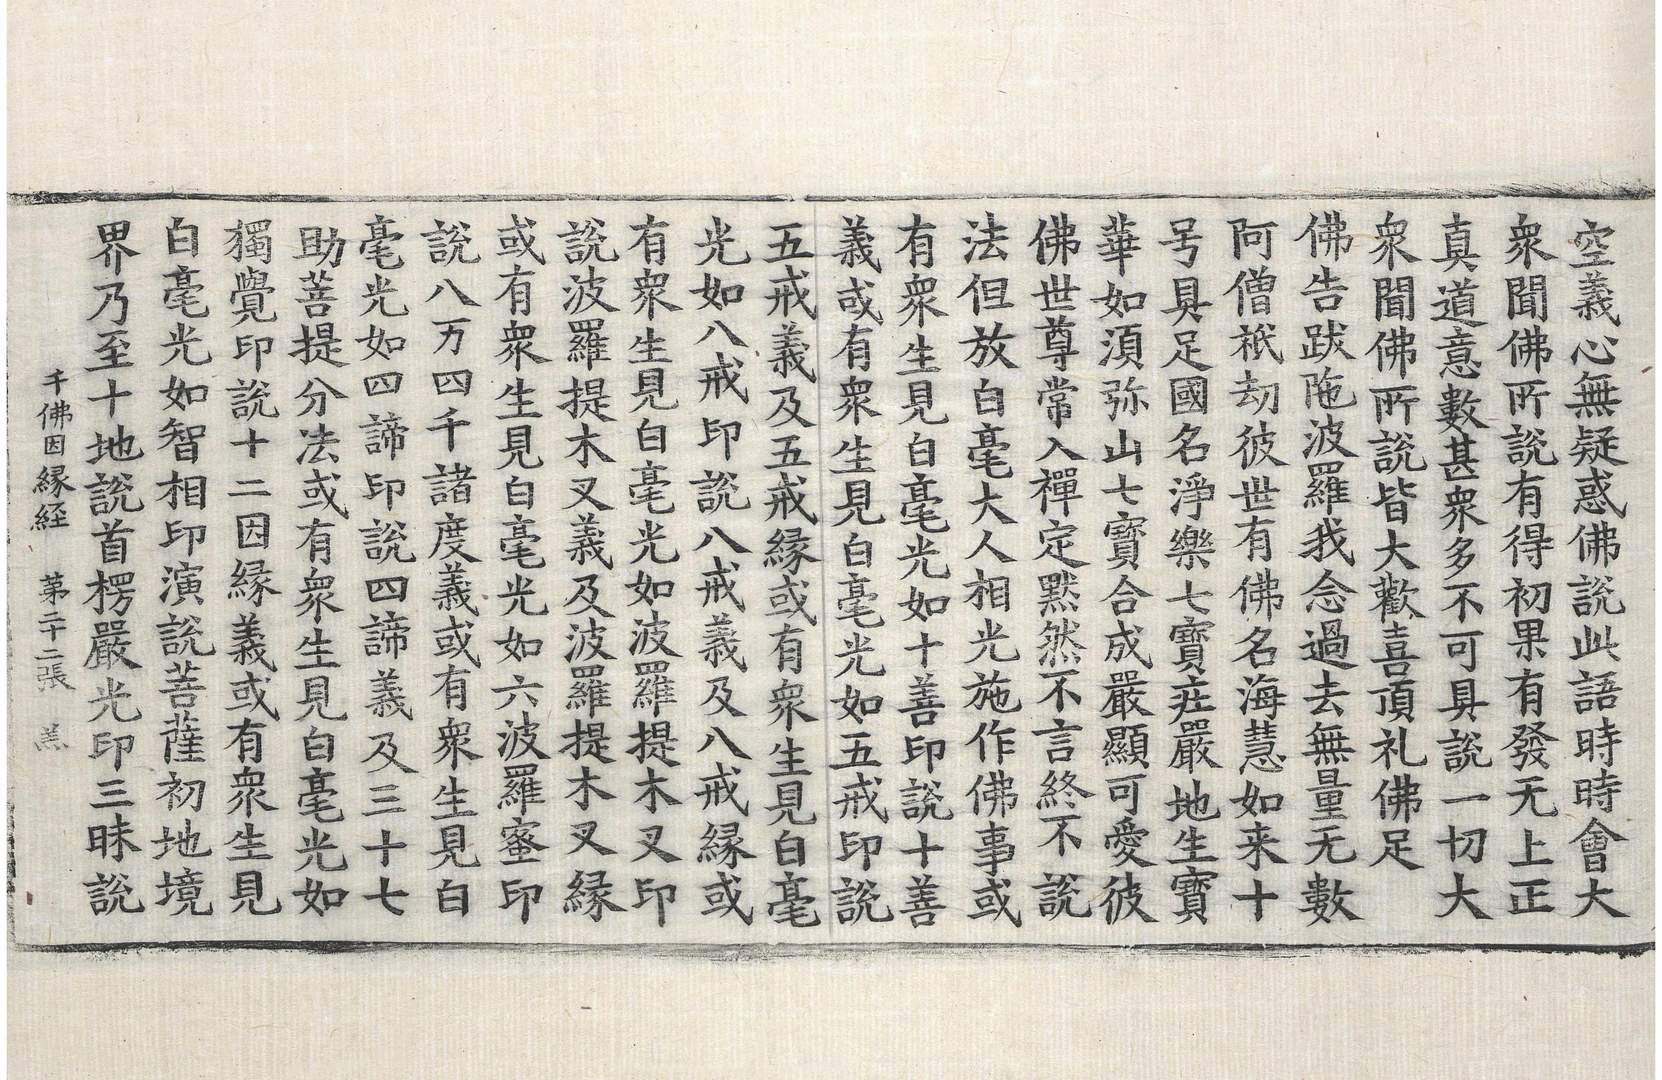 空義心無疑惑佛說此語時時會大
衆聞佛所說有得初果有發无上正
真道意數甚衆多不可具說一切大
衆聞佛所說皆大歡喜頂礼佛足
佛告跋陁波羅我念過去無量无數
阿僧祇劫彼世有佛名海慧如来十
号具足國名淨樂七寶庄嚴地生寶
華如湏弥山七寶合成嚴顯可愛彼
佛世尊常入禪定黙然不言終不說
法但放白毫大人相光施作佛事或
有衆生見白毫光如十善印說十善
義或有衆生見白毫光如五戒印說
五戒義及五戒縁或有衆生見白毫
光如八戒印說八戒義及八戒縁或
有衆生見白毫光如波羅提木叉印
說波羅提木叉義及波羅提木叉縁
或有衆生見白毫光如六波羅蜜印
說八万四千諸度義或有衆生見白
毫光如四諦印說四諦義及三十七
助菩提分法或有衆生見白毫光如
獨覺印說十二因縁義或有衆生見
白毫光如智相印演說菩薩初地境
界乃至十地說首楞嚴光印三昧說
千佛因縁経 第二十二張 羔